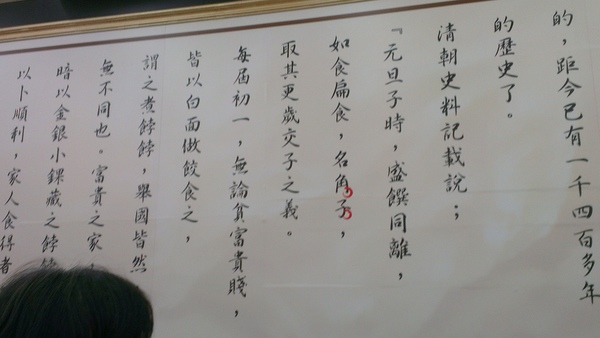 的，距今已有一千四百多年
的歷史了。
清朝史料記載說；
『元旦子時，盛饌同離，
如食扁食，名角子，
取其更歲交子之義。
每屆初一，無論貧富貴賤，
皆以白面做餃食之，
謂之煮餑餑，舉國皆然
無不同也。富貴之家，
暗以金銀小錁藏之餑
以卜順利，家人食得者